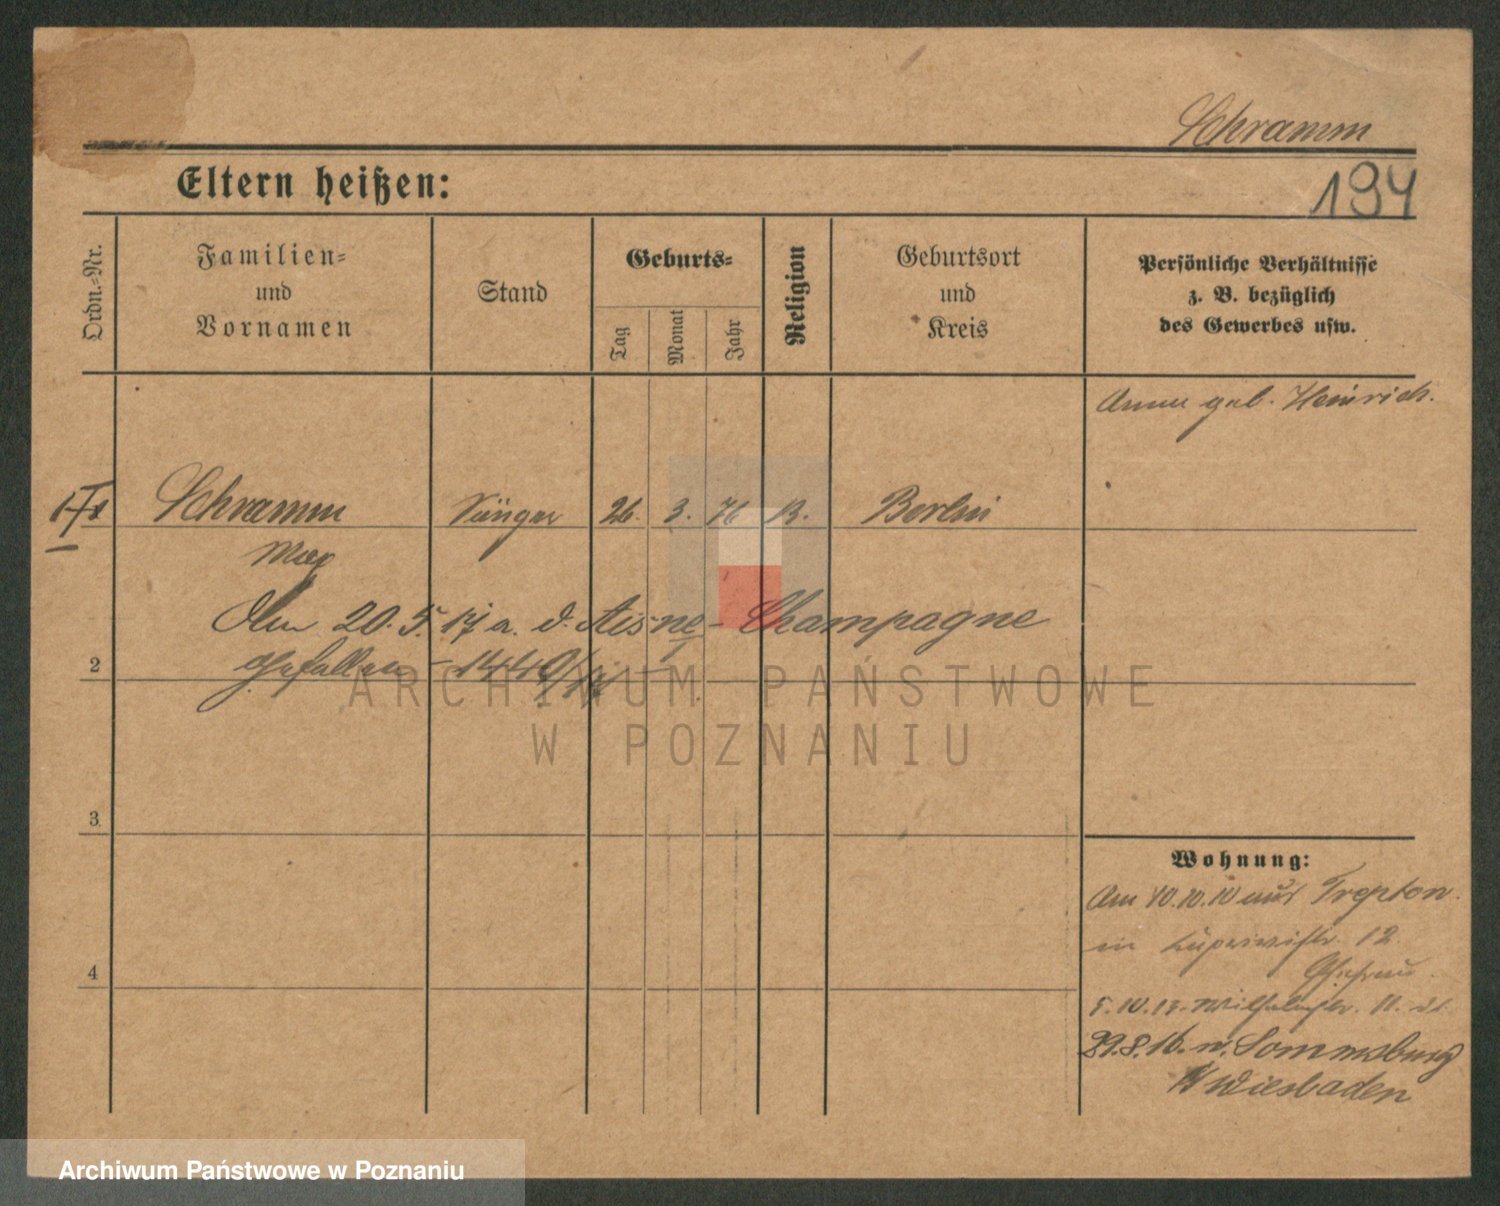 Schramm
194
Eltern heißen:
Ordn.-Nr.
Familien-
und
Vornamen
Stand
Geburts-
Tag
Monat
Jahr
Religion
Geburtsort
und
Kreis
Persönliche Verhältnisse
z. B. bezüglich
des Gewerbes usw.
geb. Heinrich.
Schramm
Sänger
26.
3.
76
Berlin
Max
Am 20.5.17 a. d. Aisne-Champagne
2
gefallen -
ARCHIWUM PAŃSTWOWE
W POZNANIU
3.
4
Wohnung:
Am 10.10.10 aus
in 12.
Ehefrau
5.10.13. 11.
29.8.16. n.
Wiesbaden
Archiwum Państwowe w Poznaniu